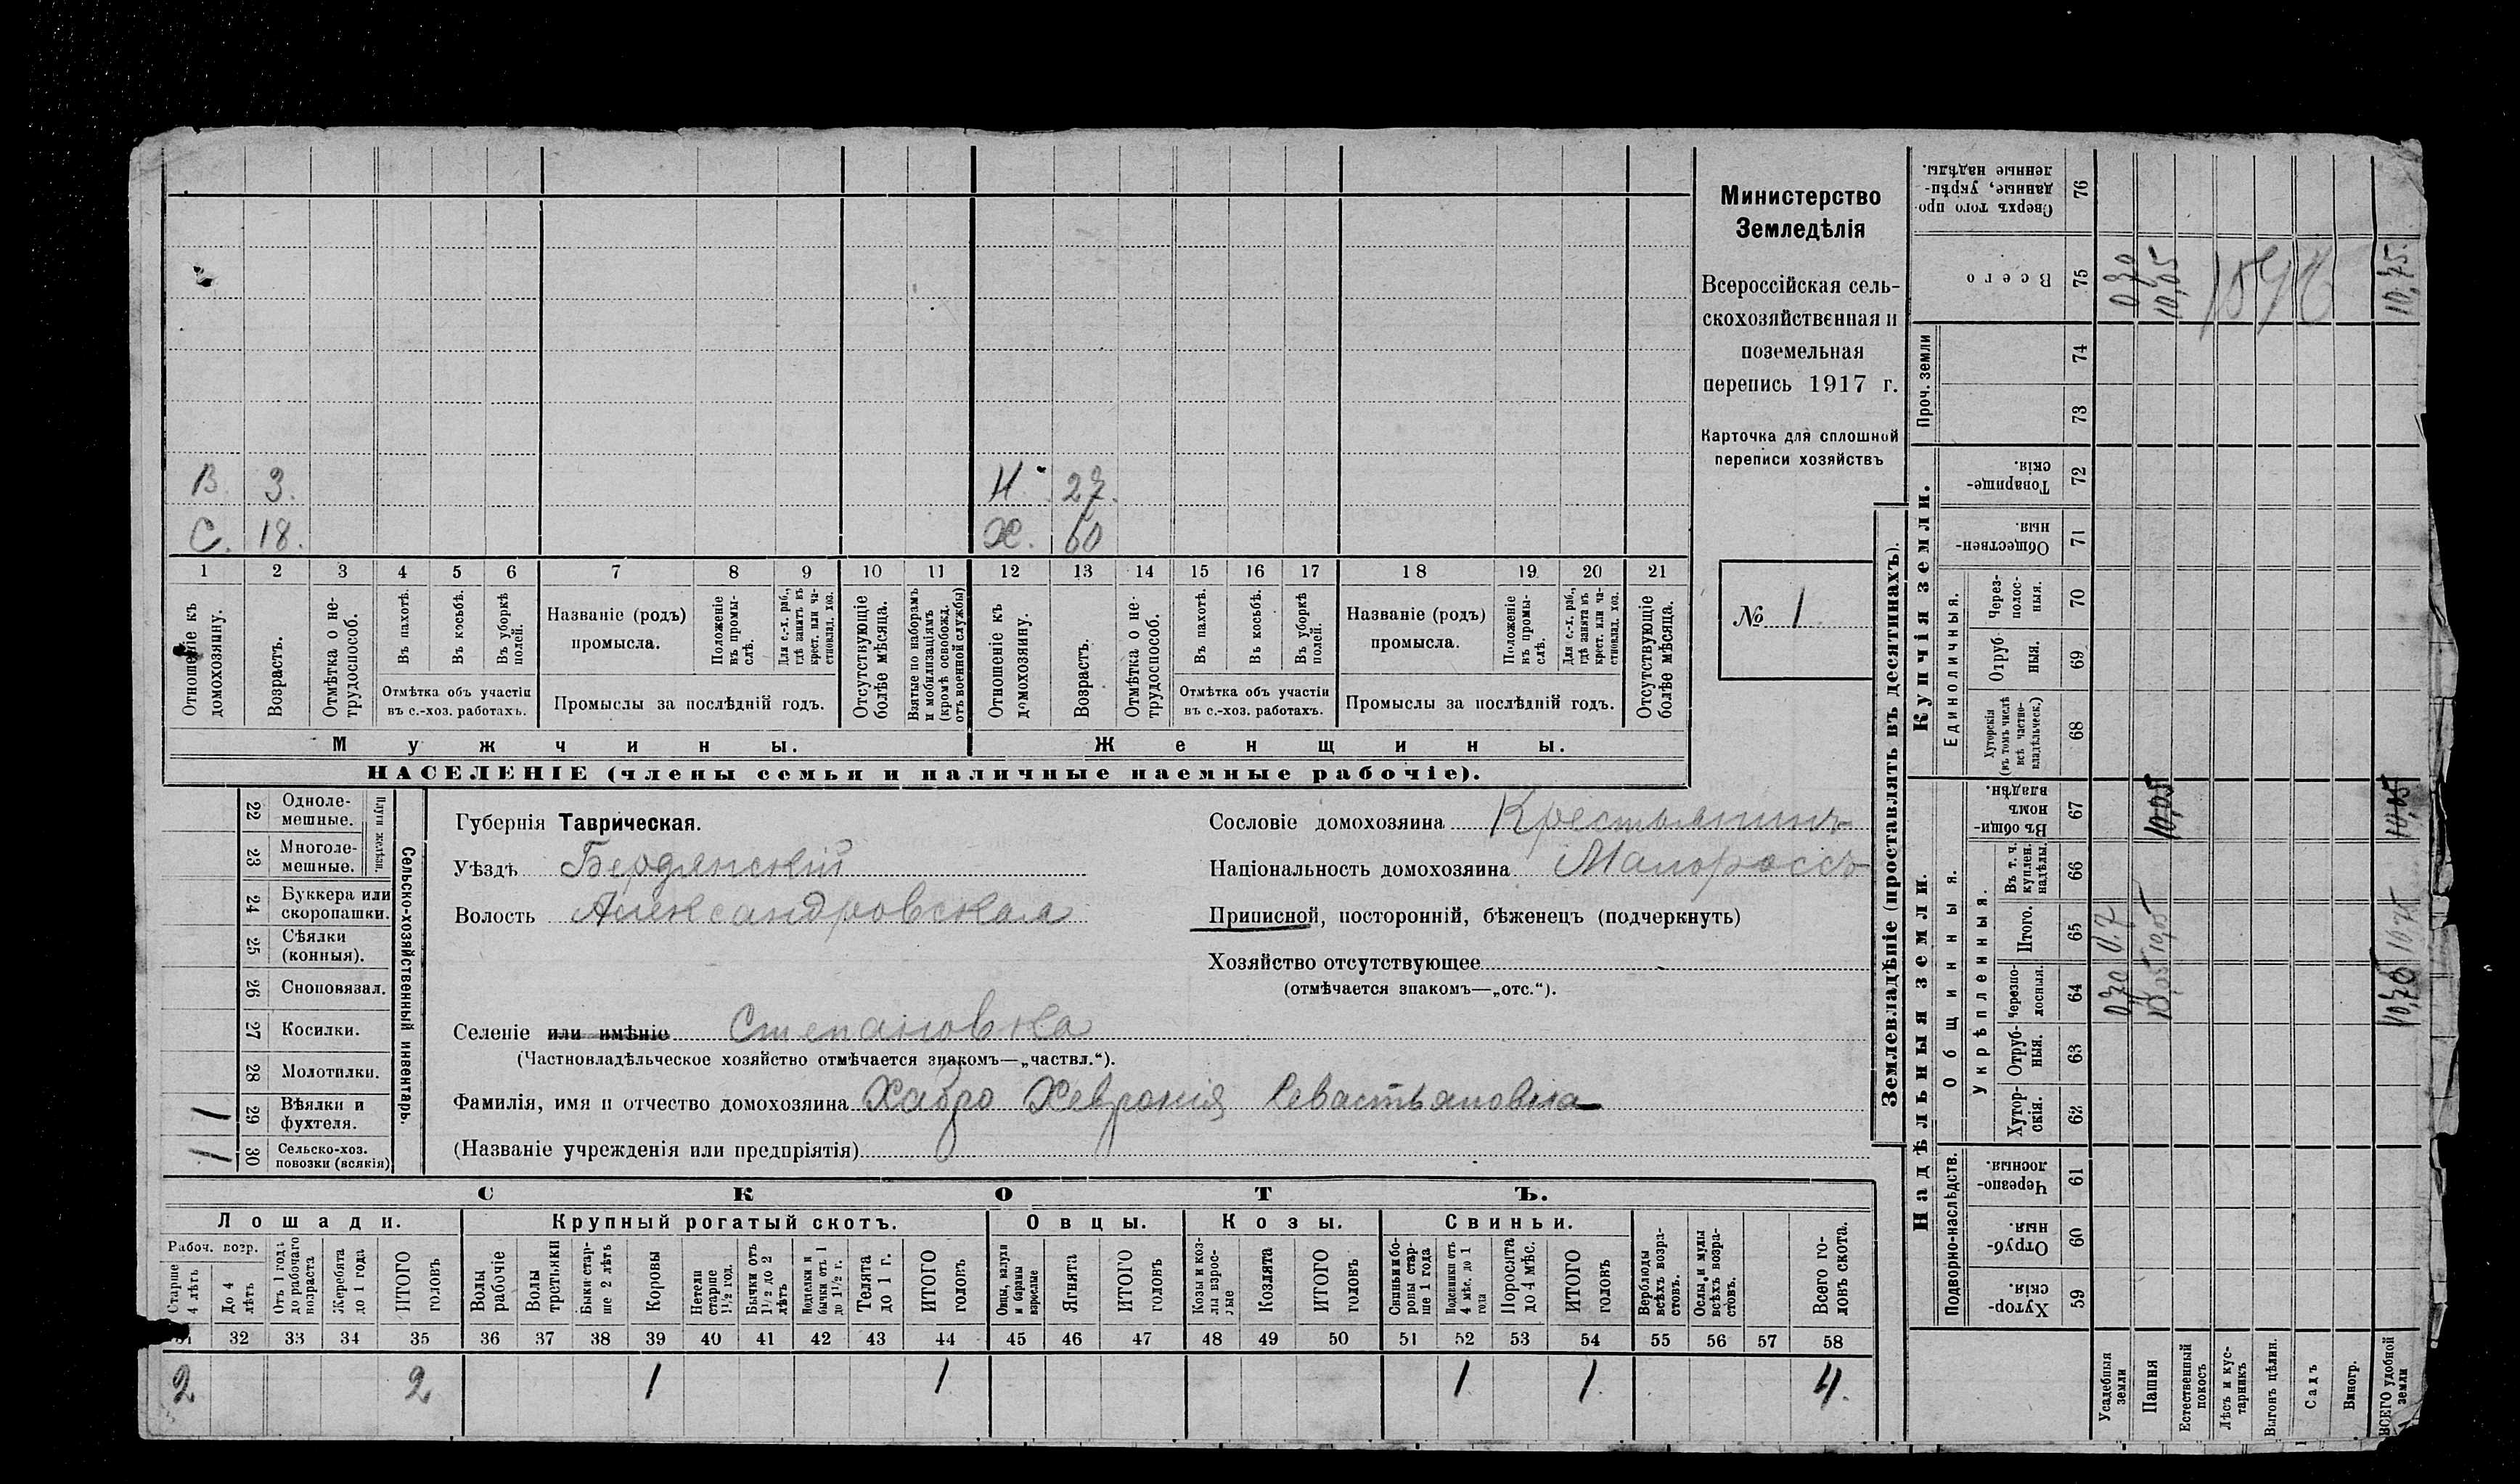 В. 3. Н. 27.
С. 18. Х. 60
1 2 3 4 5 6 7 8 9 10 11 12 13 14 15 16 17 18 19 20 21
Отношеніе къ домохозяину.
Возрастъ.
Отмѣтка о нетрудоспособ.
Въ пахотѣ.
Въ косьбѣ.
Въ уборкѣ полей.
Отмѣтка объ участіи
въ с.-хоз. работахъ.
Названіе (родъ)
промысла.
Положеніе въ промыслѣ.
Для с.-х. раб., гдѣ занятъ въ крест. или частновлад. хоз.
Промыслы за послѣдній годъ.
Отсутствующіе болѣе мѣсяца.
Взятые по наборамъ и мобилизаціямъ (кромѣ освобожд. отъ военной службы)
Отношеніе къ домохозяину.
Возрастъ.
Отмѣтка о нетрудоспособ.
Въ пахотѣ.
Въ косьбѣ.
Въ уборкѣ полей.
Отмѣтка объ участіи
въ с.-хоз. работахъ.
Названіе (родъ)
промысла.
Положеніе въ промыслѣ.
Для с.-х. раб., гдѣ занятъ въ крест. или частновлад. хоз.
Промыслы за послѣдній годъ.
Отсутствующіе болѣе мѣсяца.
Мужчины. Женщины.
НАСЕЛЕНІЕ (члены семьи и наличные наемные рабочіе).
Министерство
Земледѣлія
Всероссійская сель-
скохозяйственная и
поземельная
перепись 1917 г.
Карточка для сплошной
переписи хозяйствъ
№ 1
Сельско-хозяйственный инвентарь.
Плуги желѣзн.
22 Одноле-
мешные.
23 Многоле-
мешные.
24 Буккера или
скоропашки.
25 Сѣялки
(конныя).
26 Сноповязал.
27 Косилки.
28 Молотилки.
1 29 Вѣялки и
фухтеля.
1 30 Сельско-хоз.
повозки (всякія)
Губернія Таврическая.
Уѣздъ Бердянскій
Волость Александровская
Сословіе домохозяина Крестьянинъ
Національность домохозяина Малороссъ
Приписной, посторонній, бѣженецъ (подчеркнуть)
Хозяйство отсутствующее
(отмѣчается знакомъ—„отс.“).
Селеніе или имѣніе Степановка
(Частновладѣльческое хозяйство отмѣчается знакомъ—„частвл.“).
Фамилія, имя и отчество домохозяина Хабро Хевронія Севастьяновна
(Названіе учрежденія или предпріятія)
СКОТЪ.
Лошади. Крупный рогатый скотъ. Овцы. Козы. Свиньи.
Рабоч. возр.
Старше 4 лѣтъ
До 4 лѣтъ
Отъ 1 года до рабочаго возраста
Жеребята до 1 года
ИТОГО головъ
Волы рабочіе
Волы третьяки
Быки старше 2 лѣтъ
Коровы
Нетели старше 1½ год.
Бычки отъ 1½ до 2 лѣтъ
Водселки и бычки отъ 1 до 1½ г.
Телята до 1 г.
ИТОГО головъ
Овцы, валухи и бараны взрослые
Ягнята
ИТОГО головъ
Козы и козлы взрослые
Козлята
ИТОГО головъ
Свиньи и боровы старше 1 года
Подсвинки отъ 4 мѣс. до 1 года
Поросята до 4 мѣс.
ИТОГО головъ
Верблюды всѣхъ возрастовъ.
Ослы и мулы всѣхъ возрастовъ.
Всего головъ скота.
32 33 34 35 36 37 38 39 40 41 42 43 44 45 46 47 48 49 50 51 52 53 54 55 56 57 58
2 2 1 1 1 1. 4.
Землевладѣніе (проставлять въ десятинахъ).
Надѣльныя земли.
Купчія земли.
Проч. земли
Подворно-наслѣдств.
Общинныя.
Укрѣпленныя.
Единоличныя.
59 Хуторскія.
60 Отрубныя.
61 Черезполосныя.
62 Хуторскія.
63 Отрубныя.
64 Черезполосныя.
65 Итого.
66 Въ т. ч. куплен. надѣлы.
67 Въ общинномъ владѣн.
68 Хуторскія (въ томъ числѣ всѣ частновладѣльческ.)
69 Отрубныя.
70 Черезполосныя.
71 Общественныя.
72 Товарищескія.
73
74
75 Всего
76 Сверхъ того проданные, укрѣпленные надѣлы.
Усадебныя земли 0,70 0.7 0,70
Пашня 10,05 10,05 10,05 10,05
Естественный покосъ
Лѣсъ и кустарникъ
Выгонъ цѣлин.
Садъ
Виногр.
ВСЕГО удобной земли 10,75 10,05 10,75